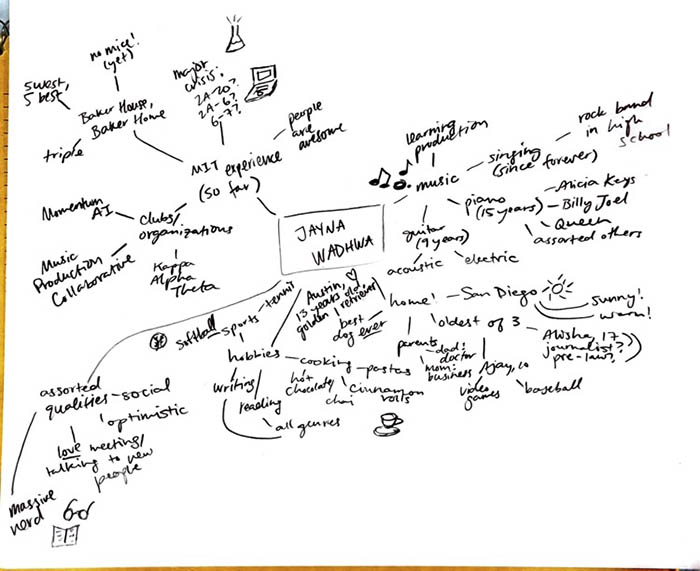 no mice!
(yet)
5 west,
5 best
Baker House,
Baker Home
triple
major
crisis:
2A-20?
2A-6?
6-7?
people
are
awesome
MIT experience
(so far)
Momentum
AI
clubs/
organizations
Music
Production
Collaborative
Kappa
Alpha
Theta
JAYNA
WADHWA
learning
production
music
singing
(since forever)
rock band
in high
school
piano
(15 years)
Alicia Keys
Billy Joel
Queen
assorted others
guitar
(9 years)
acoustic
electric
Austin,
13 years old
golden retriever
best
dog ever
home!
San Diego
sunny!
warm!
oldest of 3
parents
dad:
doctor
mom:
business
17
journalist?
pre-law?
Ajay, 10
video
games
baseball
softball
sports
tennis
hobbies
cooking
pastas
hot
chocolate
chai
cinnamon
rolls
writing
reading
all genres
assorted
qualities
social
optimistic
love meeting/
talking to new
people
massive
nerd